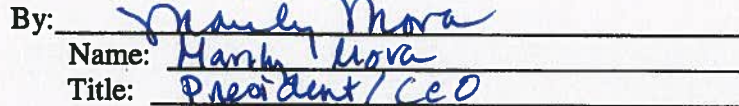 By: Mandy Mora
Name: Mandy Mora
Title: President/CEO